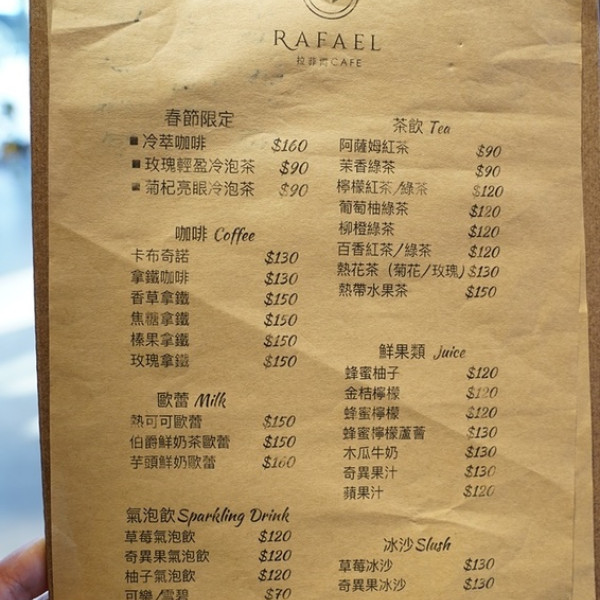 RAFAEL
CAFE
春節限定
冷萃咖啡 $160
玫瑰輕盈冷泡茶 $90
菊杞亮眼冷泡茶 $90
咖啡 Coffee
卡布奇諾 $130
拿鐵咖啡 $130
香草拿鐵 $150
焦糖拿鐵 $150
榛果拿鐵 $150
玫瑰拿鐵 $150
歐蕾 Milk
熱可可歐蕾 $150
伯爵鮮奶茶歐蕾 $150
芋頭鮮奶歐蕾 $160
氣泡飲 Sparkling Drink
草莓氣泡飲 $120
奇異果氣泡飲 $120
柚子氣泡飲 $120
可樂/雪碧 $70
茶飲 Tea
阿薩姆紅茶 $90
茉香綠茶 $90
檸檬紅茶/綠茶 $120
葡萄柚綠茶 $120
柳橙綠茶 $120
百香紅茶/綠茶 $120
熱花茶（菊花/玫瑰) $130
熱帶水果茶 $150
鮮果類 Juice
蜂蜜柚子 $120
金桔檸檬 $120
蜂蜜檸檬 $120
蜂蜜檸檬蘆薈 $130
木瓜牛奶 $130
奇異果汁 $130
蘋果汁 $120
冰沙 Slush
草莓冰沙 $130
奇異果冰沙 $130